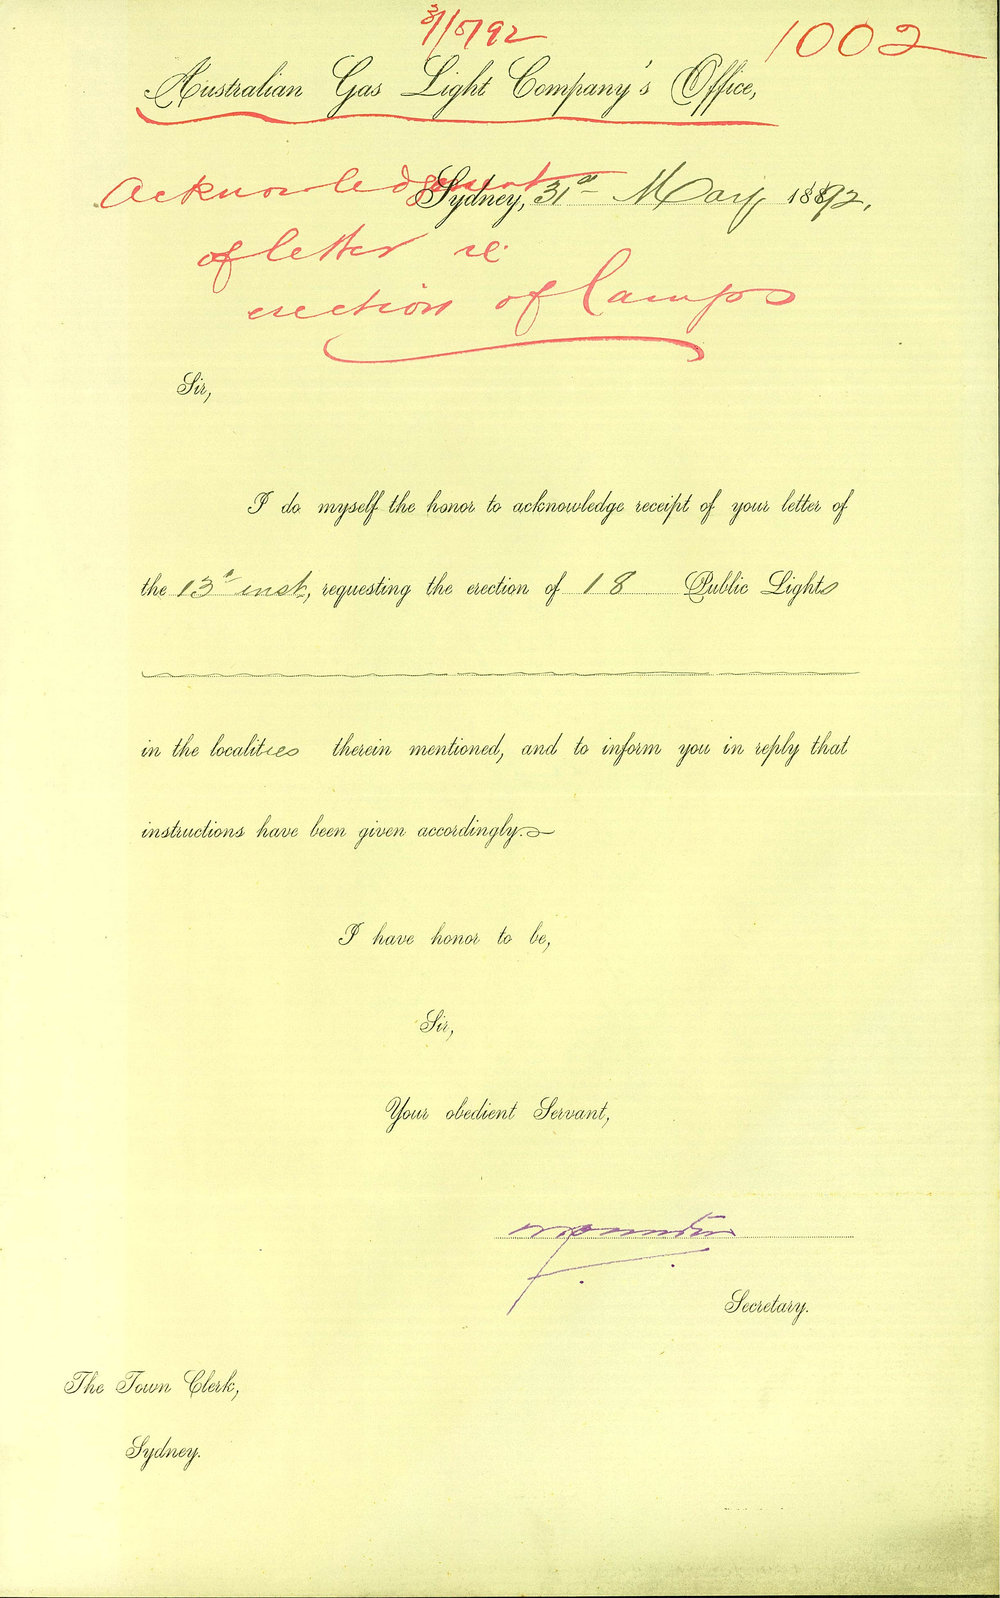 31/5/92
1002
Australian Gas Light Company's Office,
Acknowledgement
Sydney, 31st May 1892.
of letter re
erection of lamps
Sir,
I do myself the honor to acknowledge receipt of your letter of
the 13th inst, requesting the erection of 18 Public Lights
in the localities therein mentioned, and to inform you in reply that
instructions have been given accordingly.
I have honor to be,
Sir,
Your obedient Servant,
Secretary.
The Town Clerk,
Sydney.